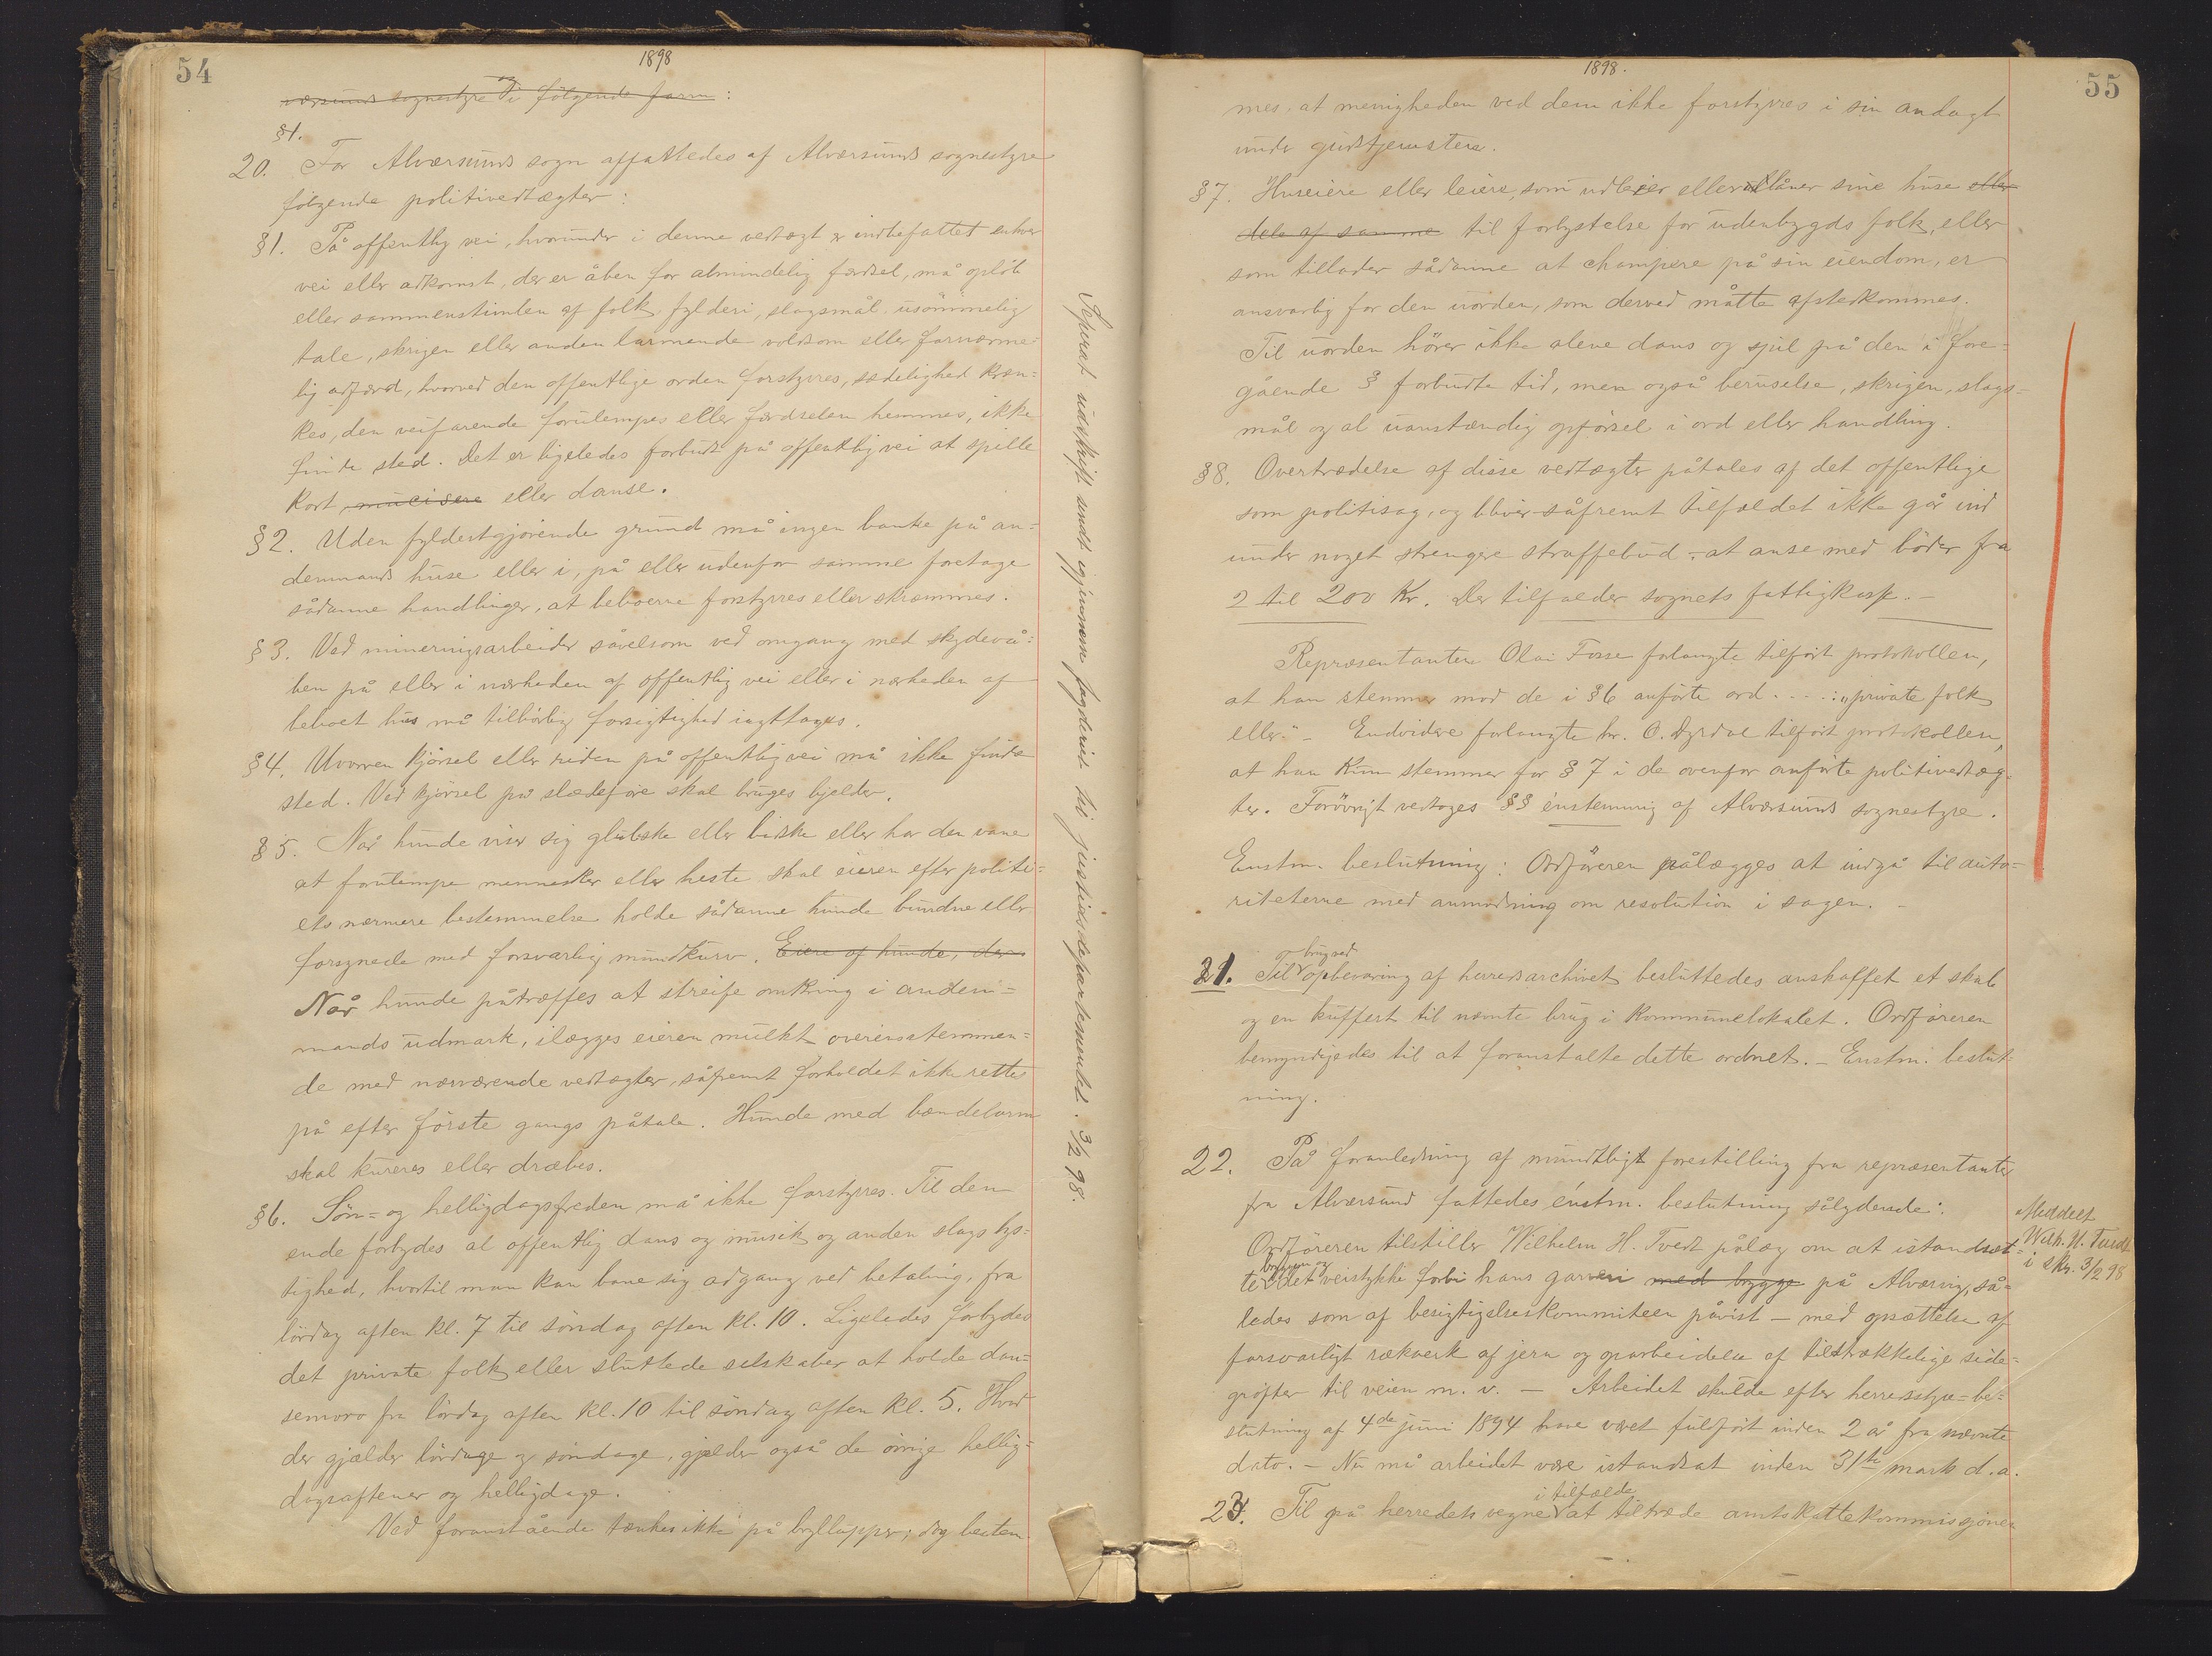 54
1898
værsunds sognestyre og i følgende form:
§1.
20. For Alværsunds sogn affattedes af Alværsunds sognestyre
følgende politivedtægter:
§1. På offentlig vei, hvorunder i denne vedtægt er indbefattet enhver
vei eller adkomst, der er åben for almindelig færdsel, må opløb
eller sammenstimlen af folk, fylderi, slagsmål, usømmelig
tale, skrigen eller anden larmende voldsom eller fornærme-
lig adfærd, hvorved den offentlige orden forstyrres, sædelighed kræn-
kes, den veifarende forulempes eller færdselen hemmes, ikke
finde sted. Det er ligeledes forbudt på offentlig vei at spille
kort, mucisere eller danse.
§2. Uden fyldestgjørende grund må ingen banke på an-
denmands huse eller i, på eller udenfor samme foretage
sådanne handlinger, at beboerne forstyrres eller skræmmes.
§3. Ved mineringsarbeider såvelsom ved omgang med skydevå-
ben på eller i nærheden af offentlig vei eller i nærheden af
beboet hus må tilbørlig forsigtighed iagttages.
§4. Uvorren kjørsel eller riden på offentlig vei må ikke finde
sted. Ved kjørsel på slædeføre skal bruges bjelder.
§5. Når hunde viser sig glubske eller bidske eller har den vane
at forulempe mennesker eller heste skal eieren efter politi-
ets nærmere bestemmelse holde sådanne hunde bundne eller
forsynede med forsvarlig mundkurv. Eiere af hunde, der
Når hunde påtræffes at streife omkring i anden-
mands udmark, ilægges eieren mulkt overensstemmen-
de med nærværende vedtægter, såfremt forholdet ikke rettes
på efter første gangs påtale. Hunde med bændelorm
skal kureres eller dræbes.
§6. Søn- og helligdagsfreden må ikke forstyrres. Til den
ende forbydes al offentlig dans og musik og anden slags lys-
tighed, hvortil man kan bane sig adgang ved betaling, fra
lørdag aften kl. 7 til søndag aften kl. 10. Ligeledes forbydes
det private folk eller sluttede selskaber at holde dan-
semoro fra lørdag aften kl. 10 til søndag aften kl. 5. Hvad
der gjælder lørdage og søndage, gjælder også de øvrige hellig-
dagsaftener og helligdage.
Ved foranstående tænkes ikke på brylluper; dog bestem-
Separat udskrift sendt igjennem fogderiet til justitsdepartementet. 3/2 98.
1898.
55
mes, at menigheden ved dem ikke forstyrres i sin andagt
under gudstjenesten.
§7. Huseiere eller leiere, som udleier eller udlåner sine huse eller
dele af samme til forlystelse for udenbygds folk, eller
som tillader sådanne at champere på sin eiendom, er
ansvarlig for den uorden, som derved måtte afstedkommes.
Til uorden hører ikke alene dans og spil på den i fore-
gående § forbudte tid, men også beruselse, skrigen, slags-
mål og al uanstændig opførsel i ord eller handling.
§8. Overtrædelse af disse vedtægter påtales af det offentlige
som politisag, og bliver såfremt tilfældet ikke går ind
under noget strengere straffebud - at anse med bøder fra
2 til 200 Kr. Der tilfalder sognets fattigkasse. -
Repræsentanten Olai Fosse forlangte tilført protokollen,
at han stemmer mod de i §6 anførte ord ....: "private folk
eller" - Endvidere forlangte hr. O. Dyrdal tilført protokollen,
at han kun stemmer for §7 i de ovenfor anførte politivedtæg-
ter. Forøvrigt vedtoges §§ énstemmig af Alværsunds sognestyre.
Enstm. beslutning: Ordføreren pålægges at indgå til auto-
riteterne med anmodning om resolution i sagen. -
og brug ved
21. Til opbevaring af herredsarchivet besluttedes anskaffet et skab
og en kuffert til nævnte brug i kommunelokalet. Ordføreren
bemyndigedes til at foranstalte dette ordnet. - Enstm. beslut-
ning.
22. På foranledning af mundtligt forestilling fra repræsentanter
fra Alværsund fattedes énstm. beslutning sålydende:
Ordføreren tilstiller Wilhelm H. Tvedt pålæg om at istandsæt-
bryggen og
te det veistykke forbi hans garveri med brygge på Alværvig, så-
ledes som af besigtigelseskommiteen påvist - med opsættelse af
forsvarligt rækverk af jern og oparbeidelse af tilstrækkelige side-
grøfter til veien m. v. - Arbeidet skulde efter herredsstyre-be-
slutning af 4de juni 1894 have været fuldført inden 2 år fra nævnte
dato. - Nu må arbeidet være istandsat inden 31te marts d.a.
i tilfælde
23. Til på herredets vegne at tiltræde amtskattekommissjonen
Meddelt
Wilh. H. Tvedt
i skr. 3/2 98